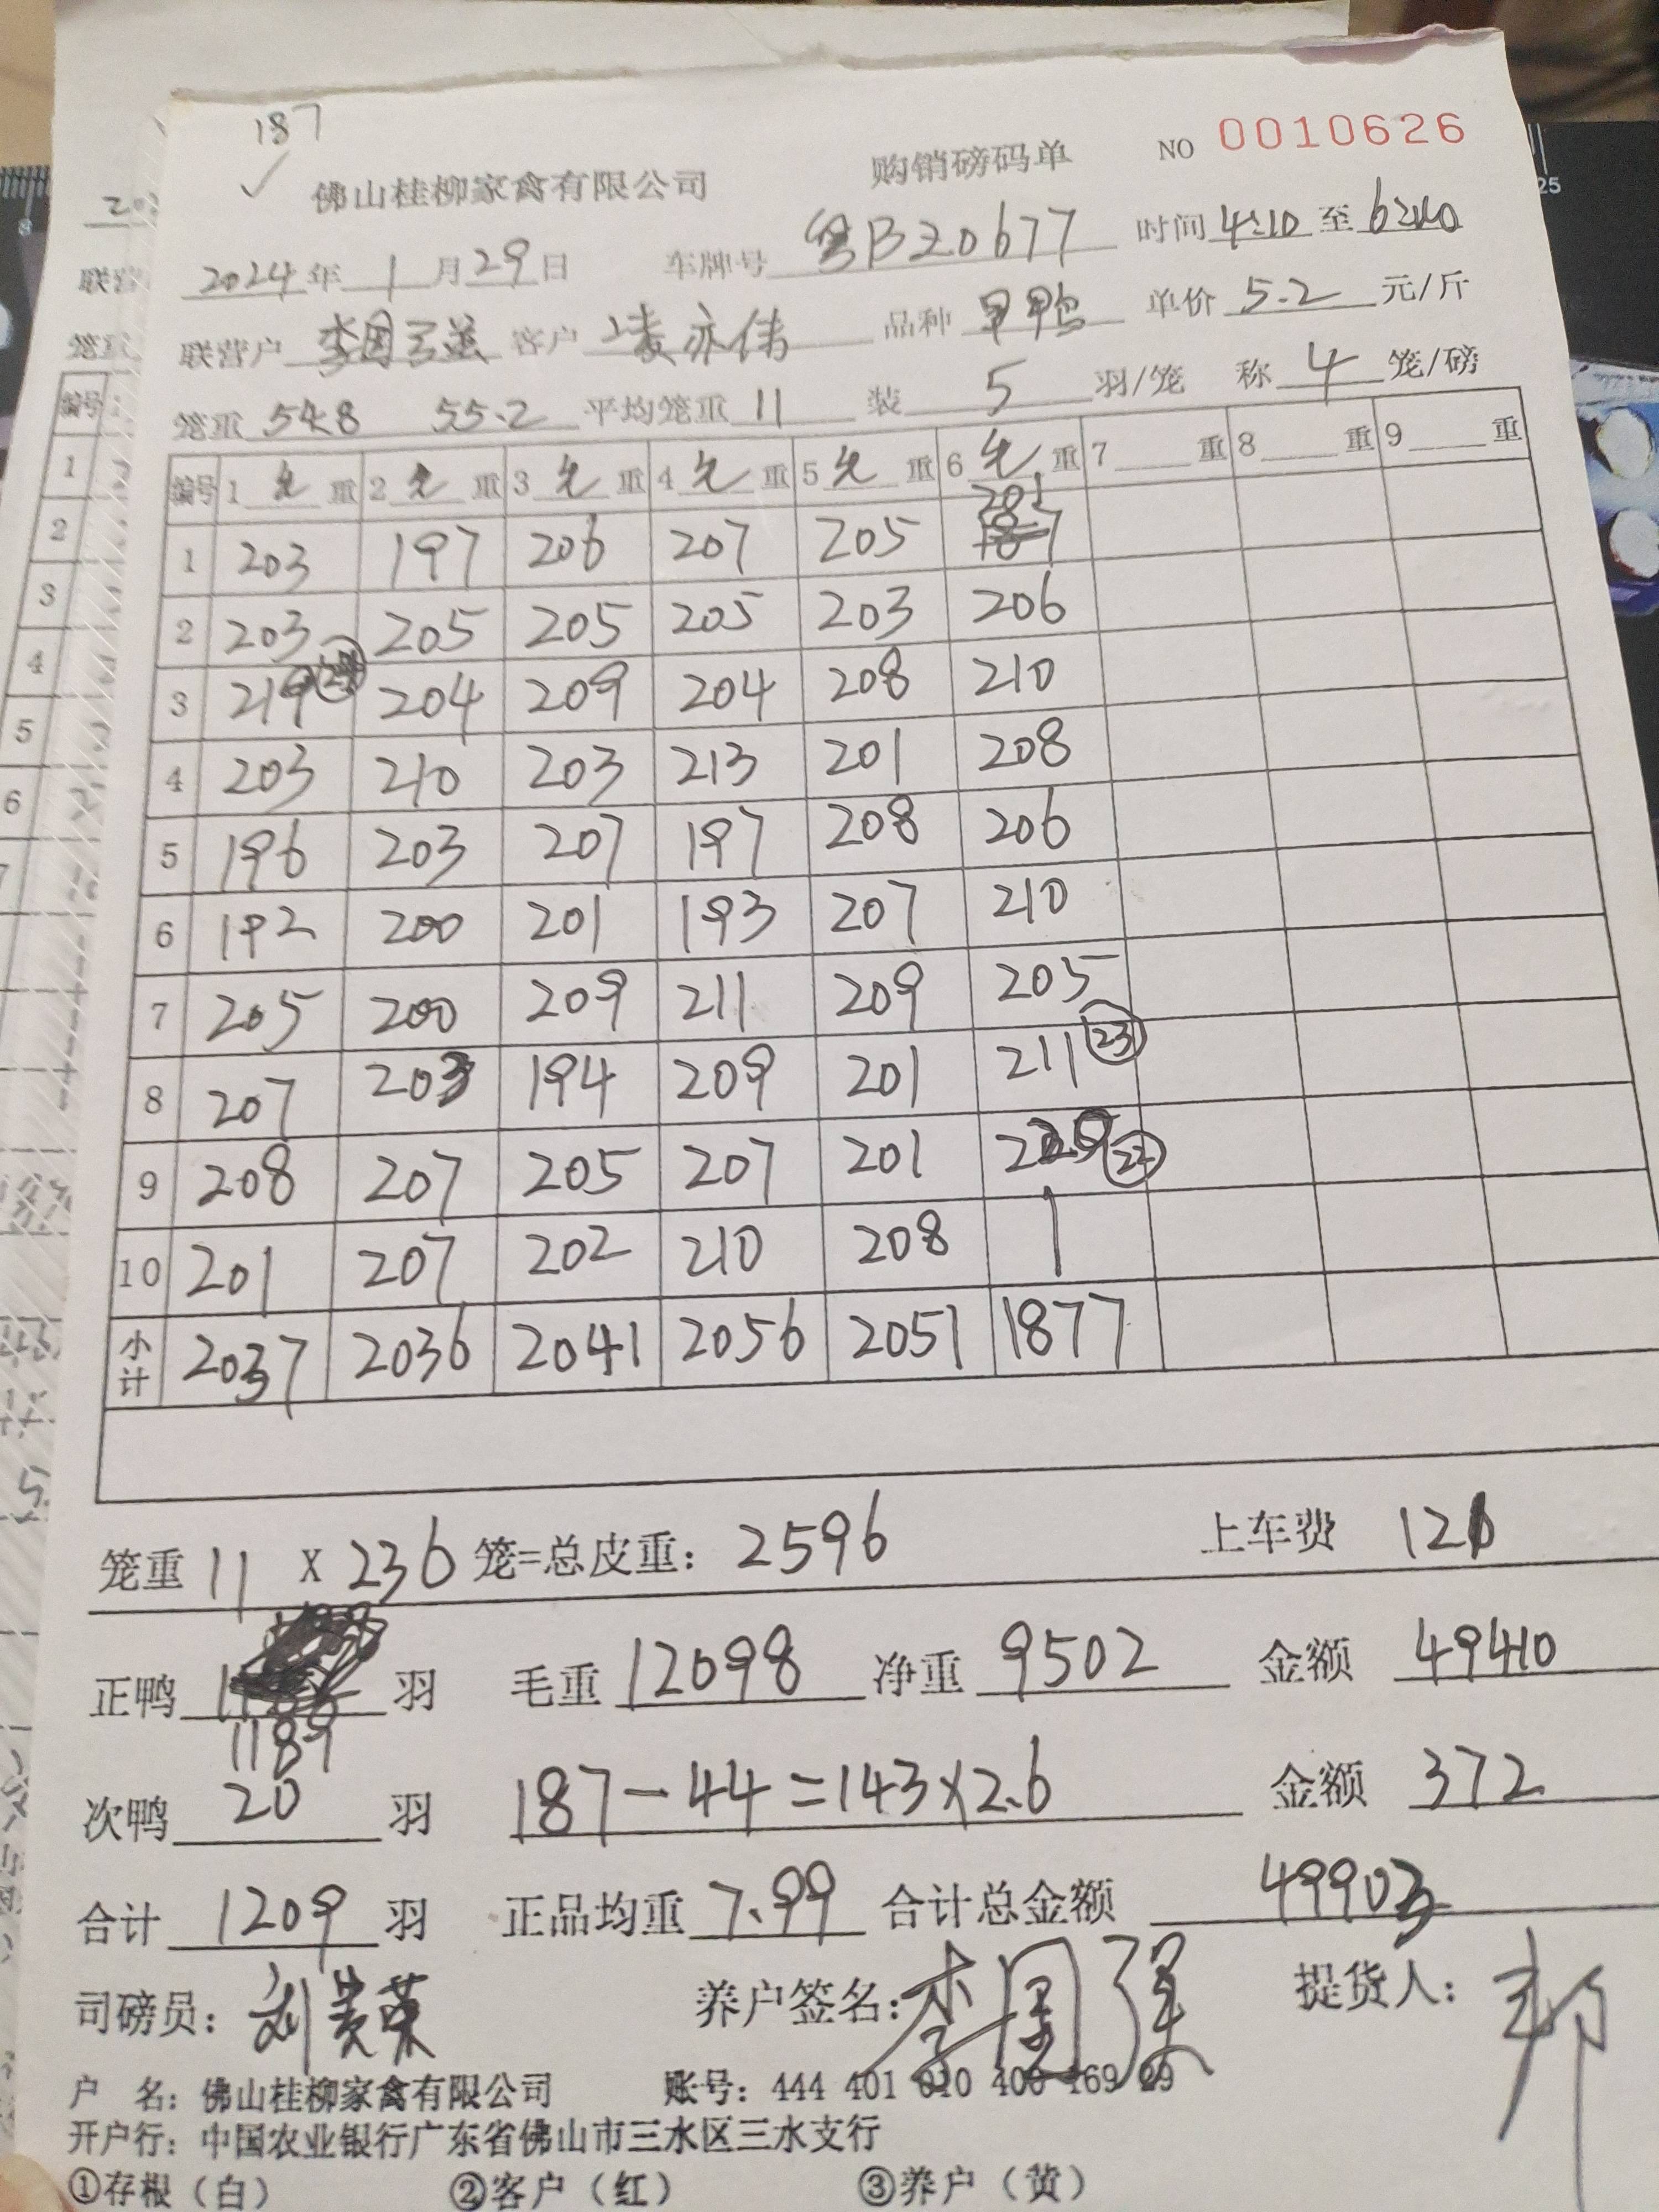 187
✓
佛山桂柳家禽有限公司 购销磅码单 NO 0010626
2024年1月29日 车牌号 粤BZ0677 时间 4:10 至 6:40
联营户 李国强 客户 凌亦伟 品种 单价 5.2 元/斤
笼重 54.8 55.2 平均笼重 11 装 5 羽/笼 称 4 笼/磅
编号 1 毛 重 2 毛 重 3 毛 重 4 毛 重 5 毛 重 6 毛 重 7 重 8 重 9 重
1 203 197 206 207 205 201
2 203 205 205 205 203 206
3 219 204 209 204 208 210
4 203 210 203 213 201 208
5 196 203 207 197 208 206
6 192 200 201 193 207 210
7 205 200 209 211 209 205
8 207 203 194 209 201 211 (23)
9 208 207 205 207 201 (22)
10 201 207 202 210 208
小计 2037 2036 2041 2056 2051 1877
笼重 11 X 236 笼=总皮重: 2596 上车费 121
正鸭 1189 羽 毛重 12098 净重 9502 金额 49410
次鸭 20 羽 187-44=143×2.6 金额 372
合计 1209 羽 正品均重 7.99 合计总金额 49903
司磅员: 刘贵荣 养户签名: 李国强 提货人:
户 名: 佛山桂柳家禽有限公司 账号: 444 401 010 400 169 29
开户行: 中国农业银行广东省佛山市三水区三水支行
①存根（白） ②客户（红） ③养户（黄）